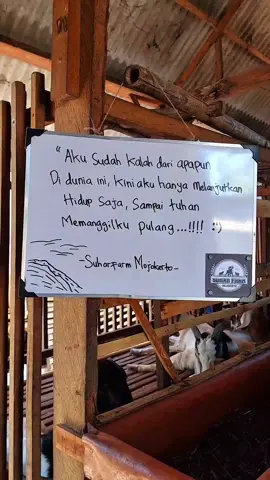 "Aku Sudah Kalah dari apapun
Di dunia ini, Kini aku hanya Melanjutkan
Hidup Saja, Sampai tuhan
Memanggilku pulang...!!!! :)
-Suhar Farm Mojokerto-
SUHAR FARM